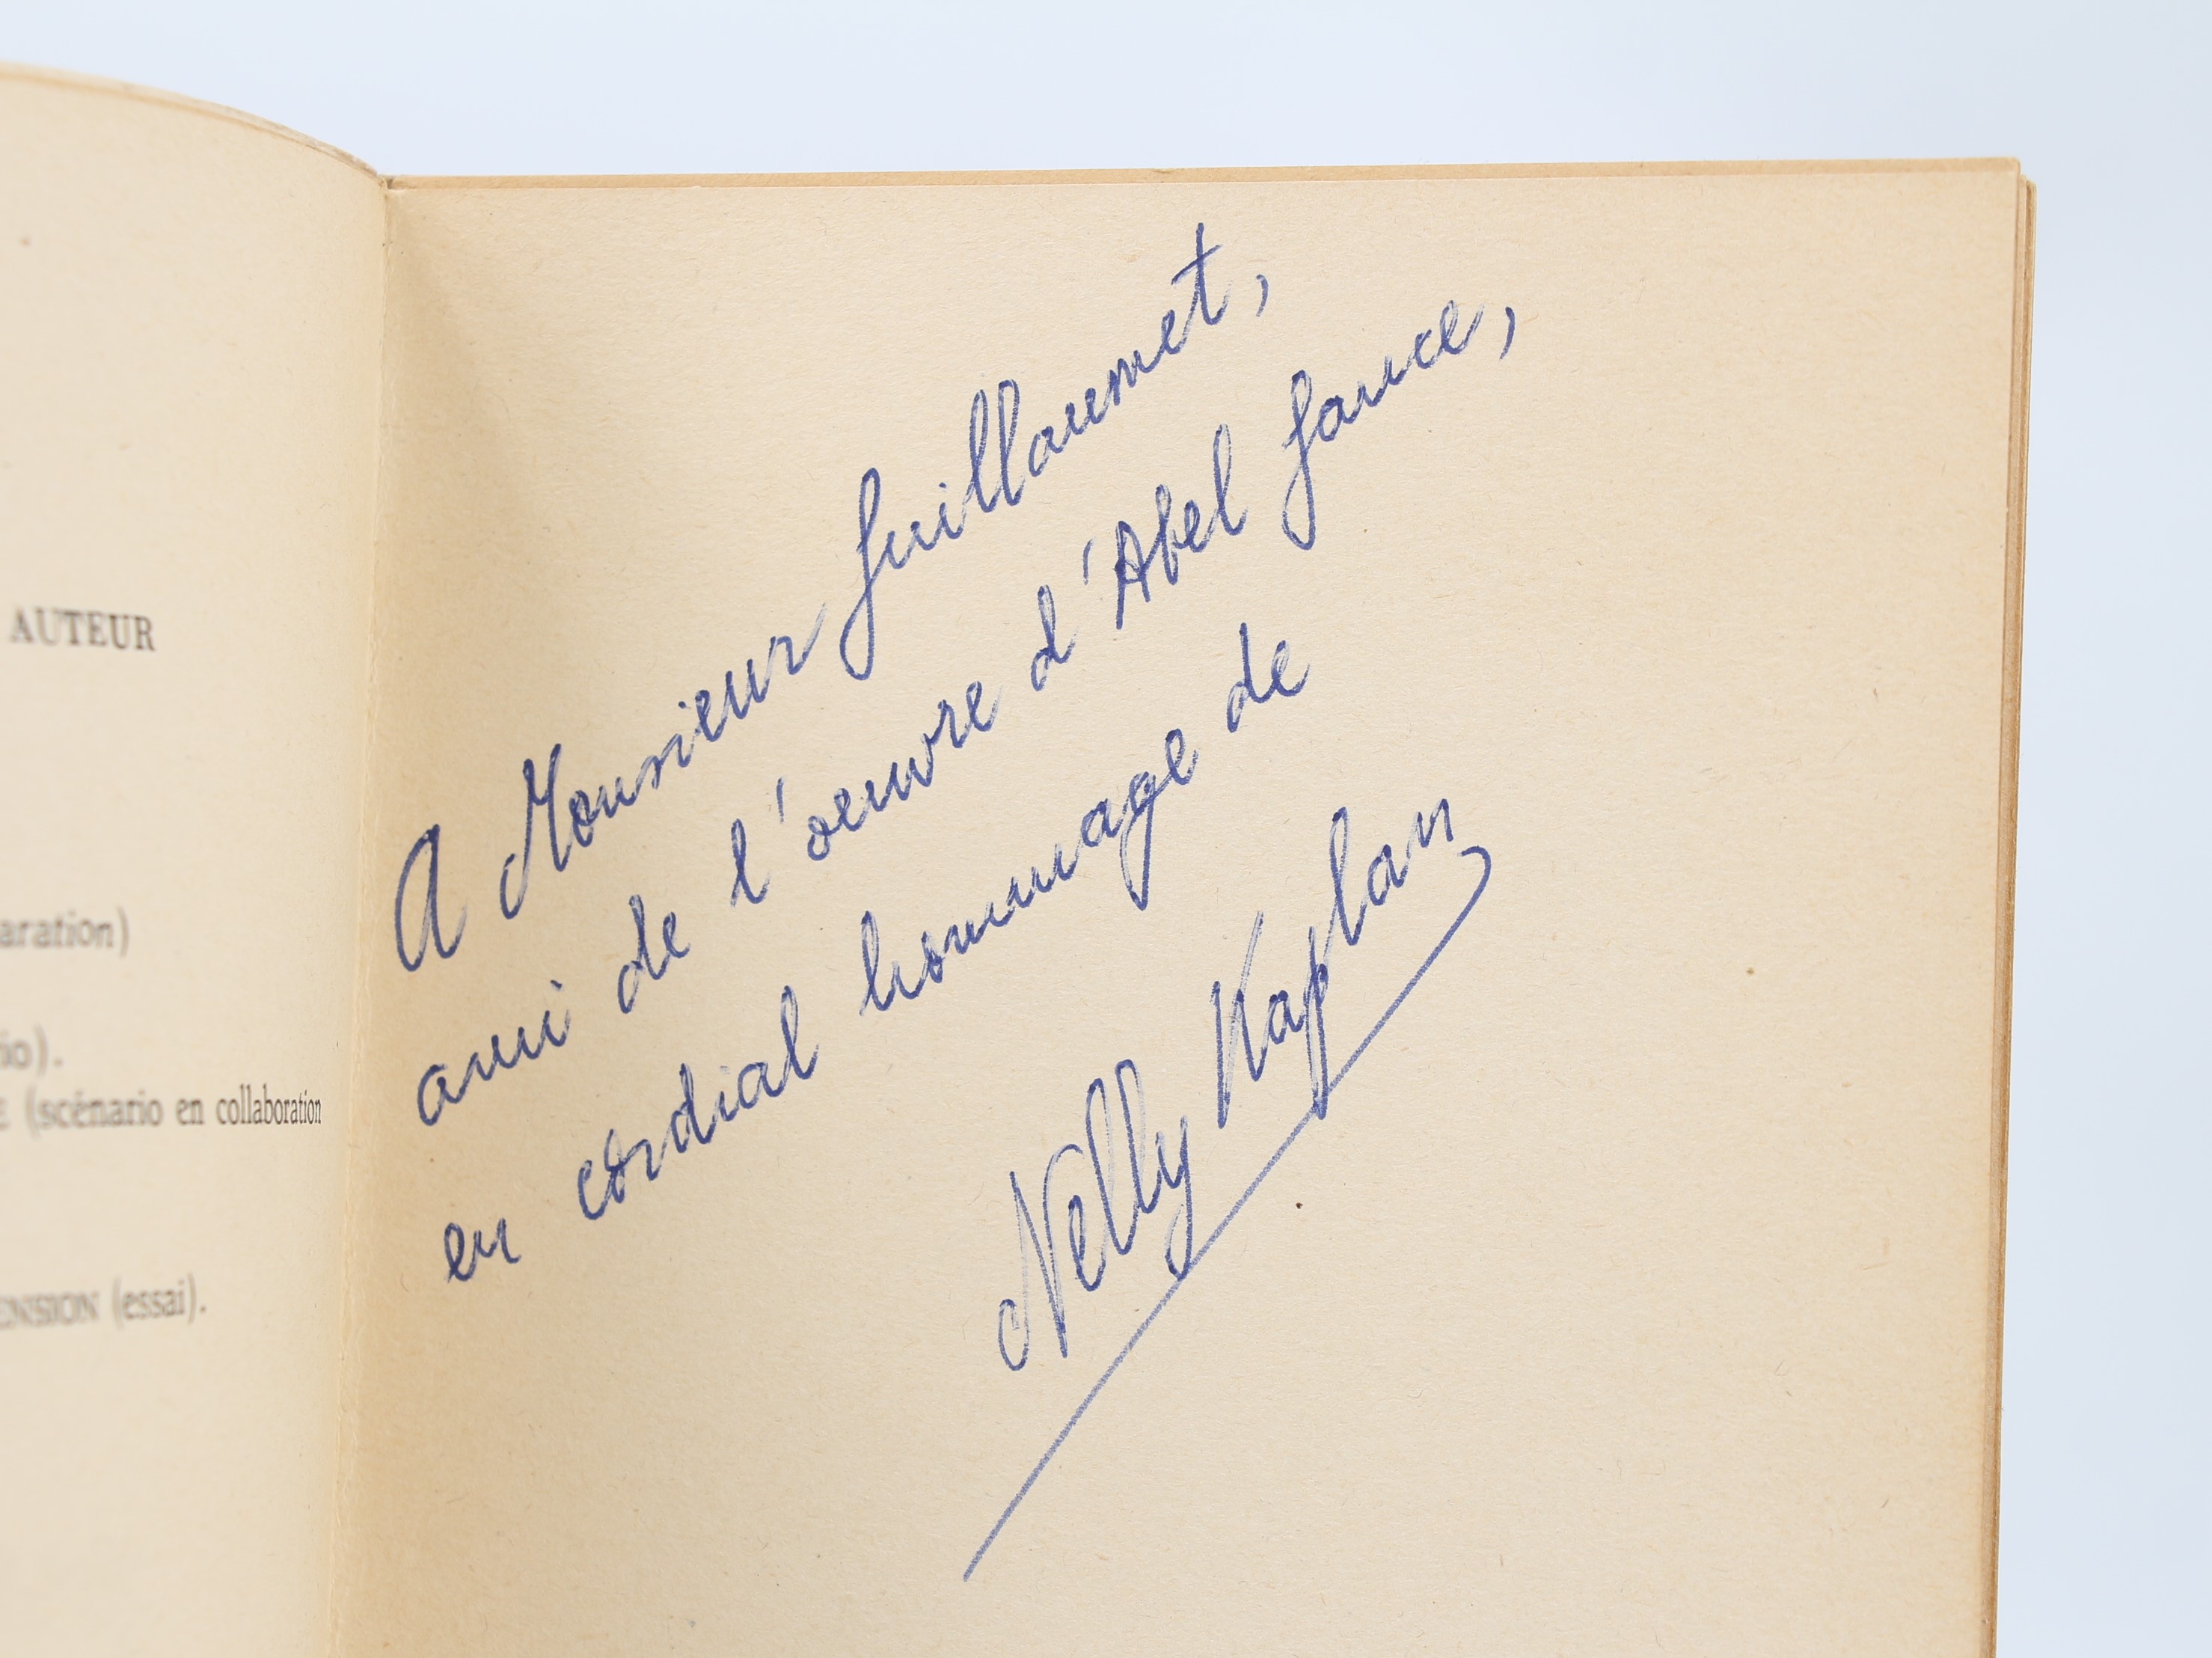 AUTEUR
aration)
io).
E (scénario en collaboration
ENSION (essai).
A Monsieur Guillaumet,
ami de l'oeuvre d'Abel Gance,
en cordial hommage de
Nelly Kaplan